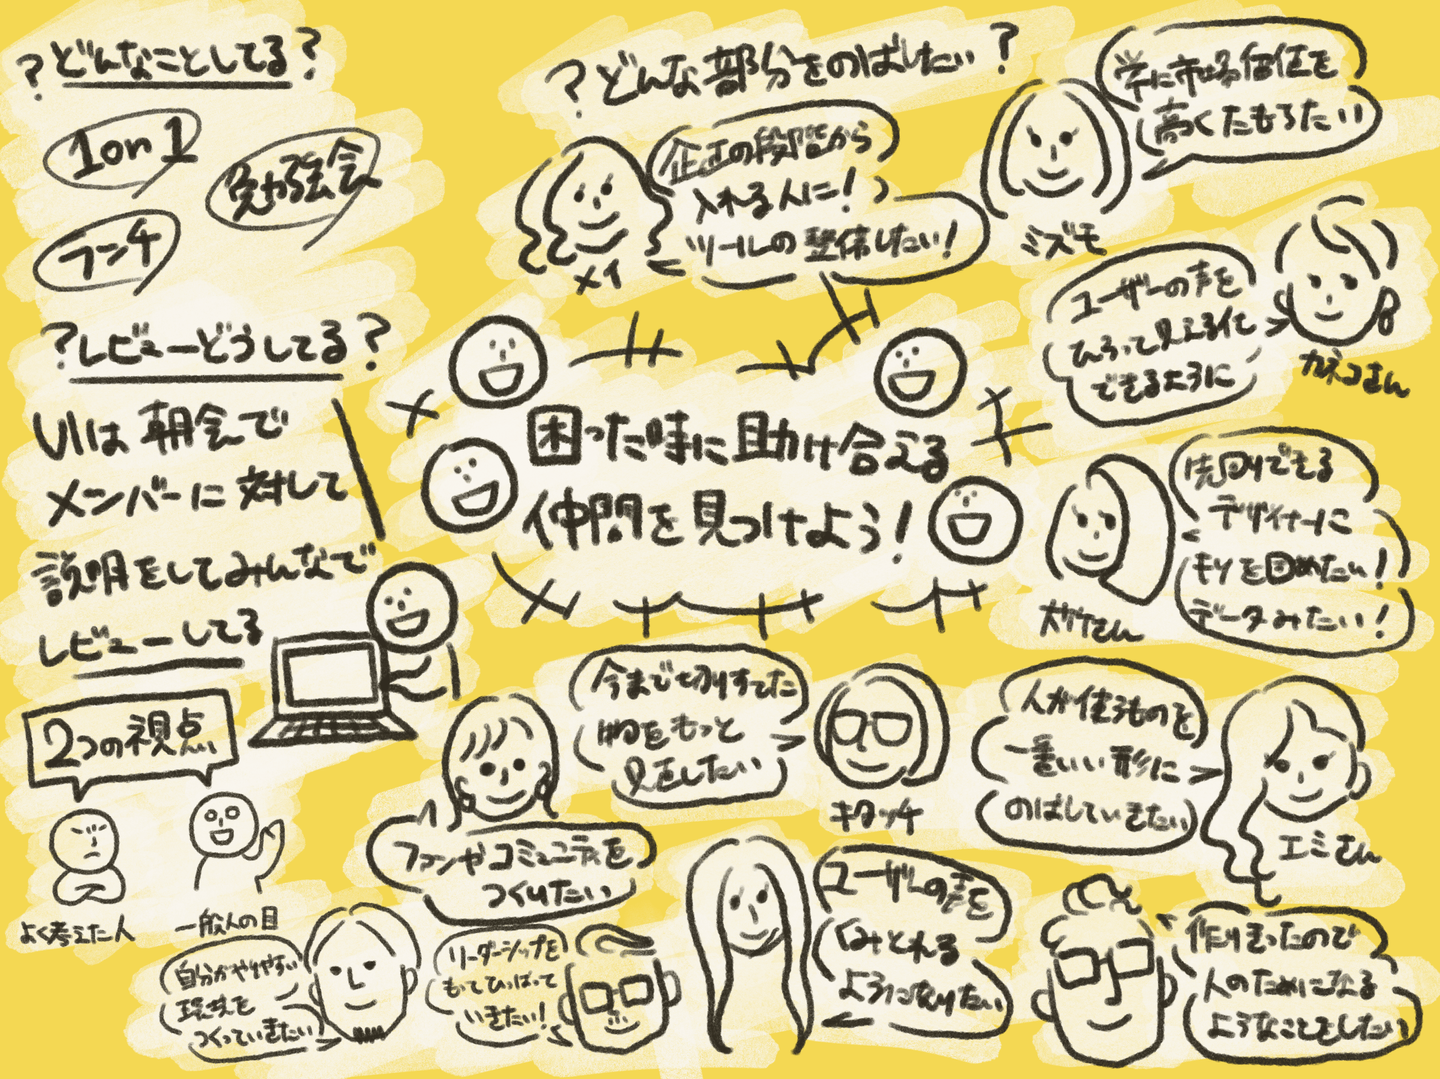 ?どんなことしてる?
1on1
勉強会
ランチ
?レビューどうしてる?
UIは朝会で
メンバーに対して
説明をしてみんなで
レビューしてる
2つの視点
よく考えた人
一般人の目
?どんな部分をのばしたい?
企画の段階から
入れる人に!
ツールの整備したい!
メイ
常に市場価値を
高くたもちたい
ミズモ
ユーザーの声を
ひろって見える化
できるように
カネコさん
困った時に助け合える
仲間を見つけよう!
先回りできる
デザイナーに
キソを固めたい!
データみたい!
今まで切りすてた
物をもっと
見直したい
キタッチ
人が使うものを
一番いい形に
のばしていきたい
エミさん
ファンやコミュニティを
つくりたい
ユーザーの声を
くみとれる
ようになりたい
作りきったので
人のためになる
ようなことをしたい
自分がやりやすい
環境を
つくっていきたい
リーダーシップを
もってひっぱって
いきたい!